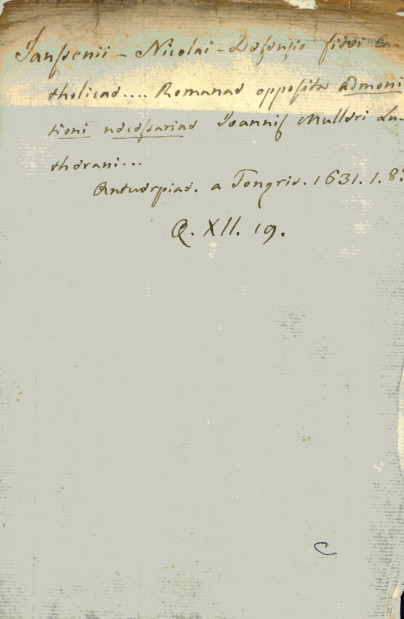 Janssenii - Nicolai - Defensio fidei Ca-
tholicae.... Romanae opposita admoni
tioni necessariae Joannis Mulleri Lu-
therani...
Antuerpiae. a Tongris. 1631. 1. 8.
Q. XII. 19.
C